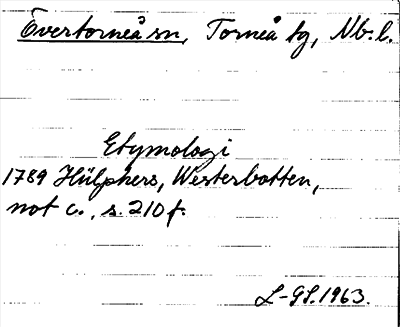 Övertorneå sn, Torneå tg, Nb. l.
Etymologi
1789 Hülphers, Westerbotten,
not c., s. 210 f.
L-GL. 1963.